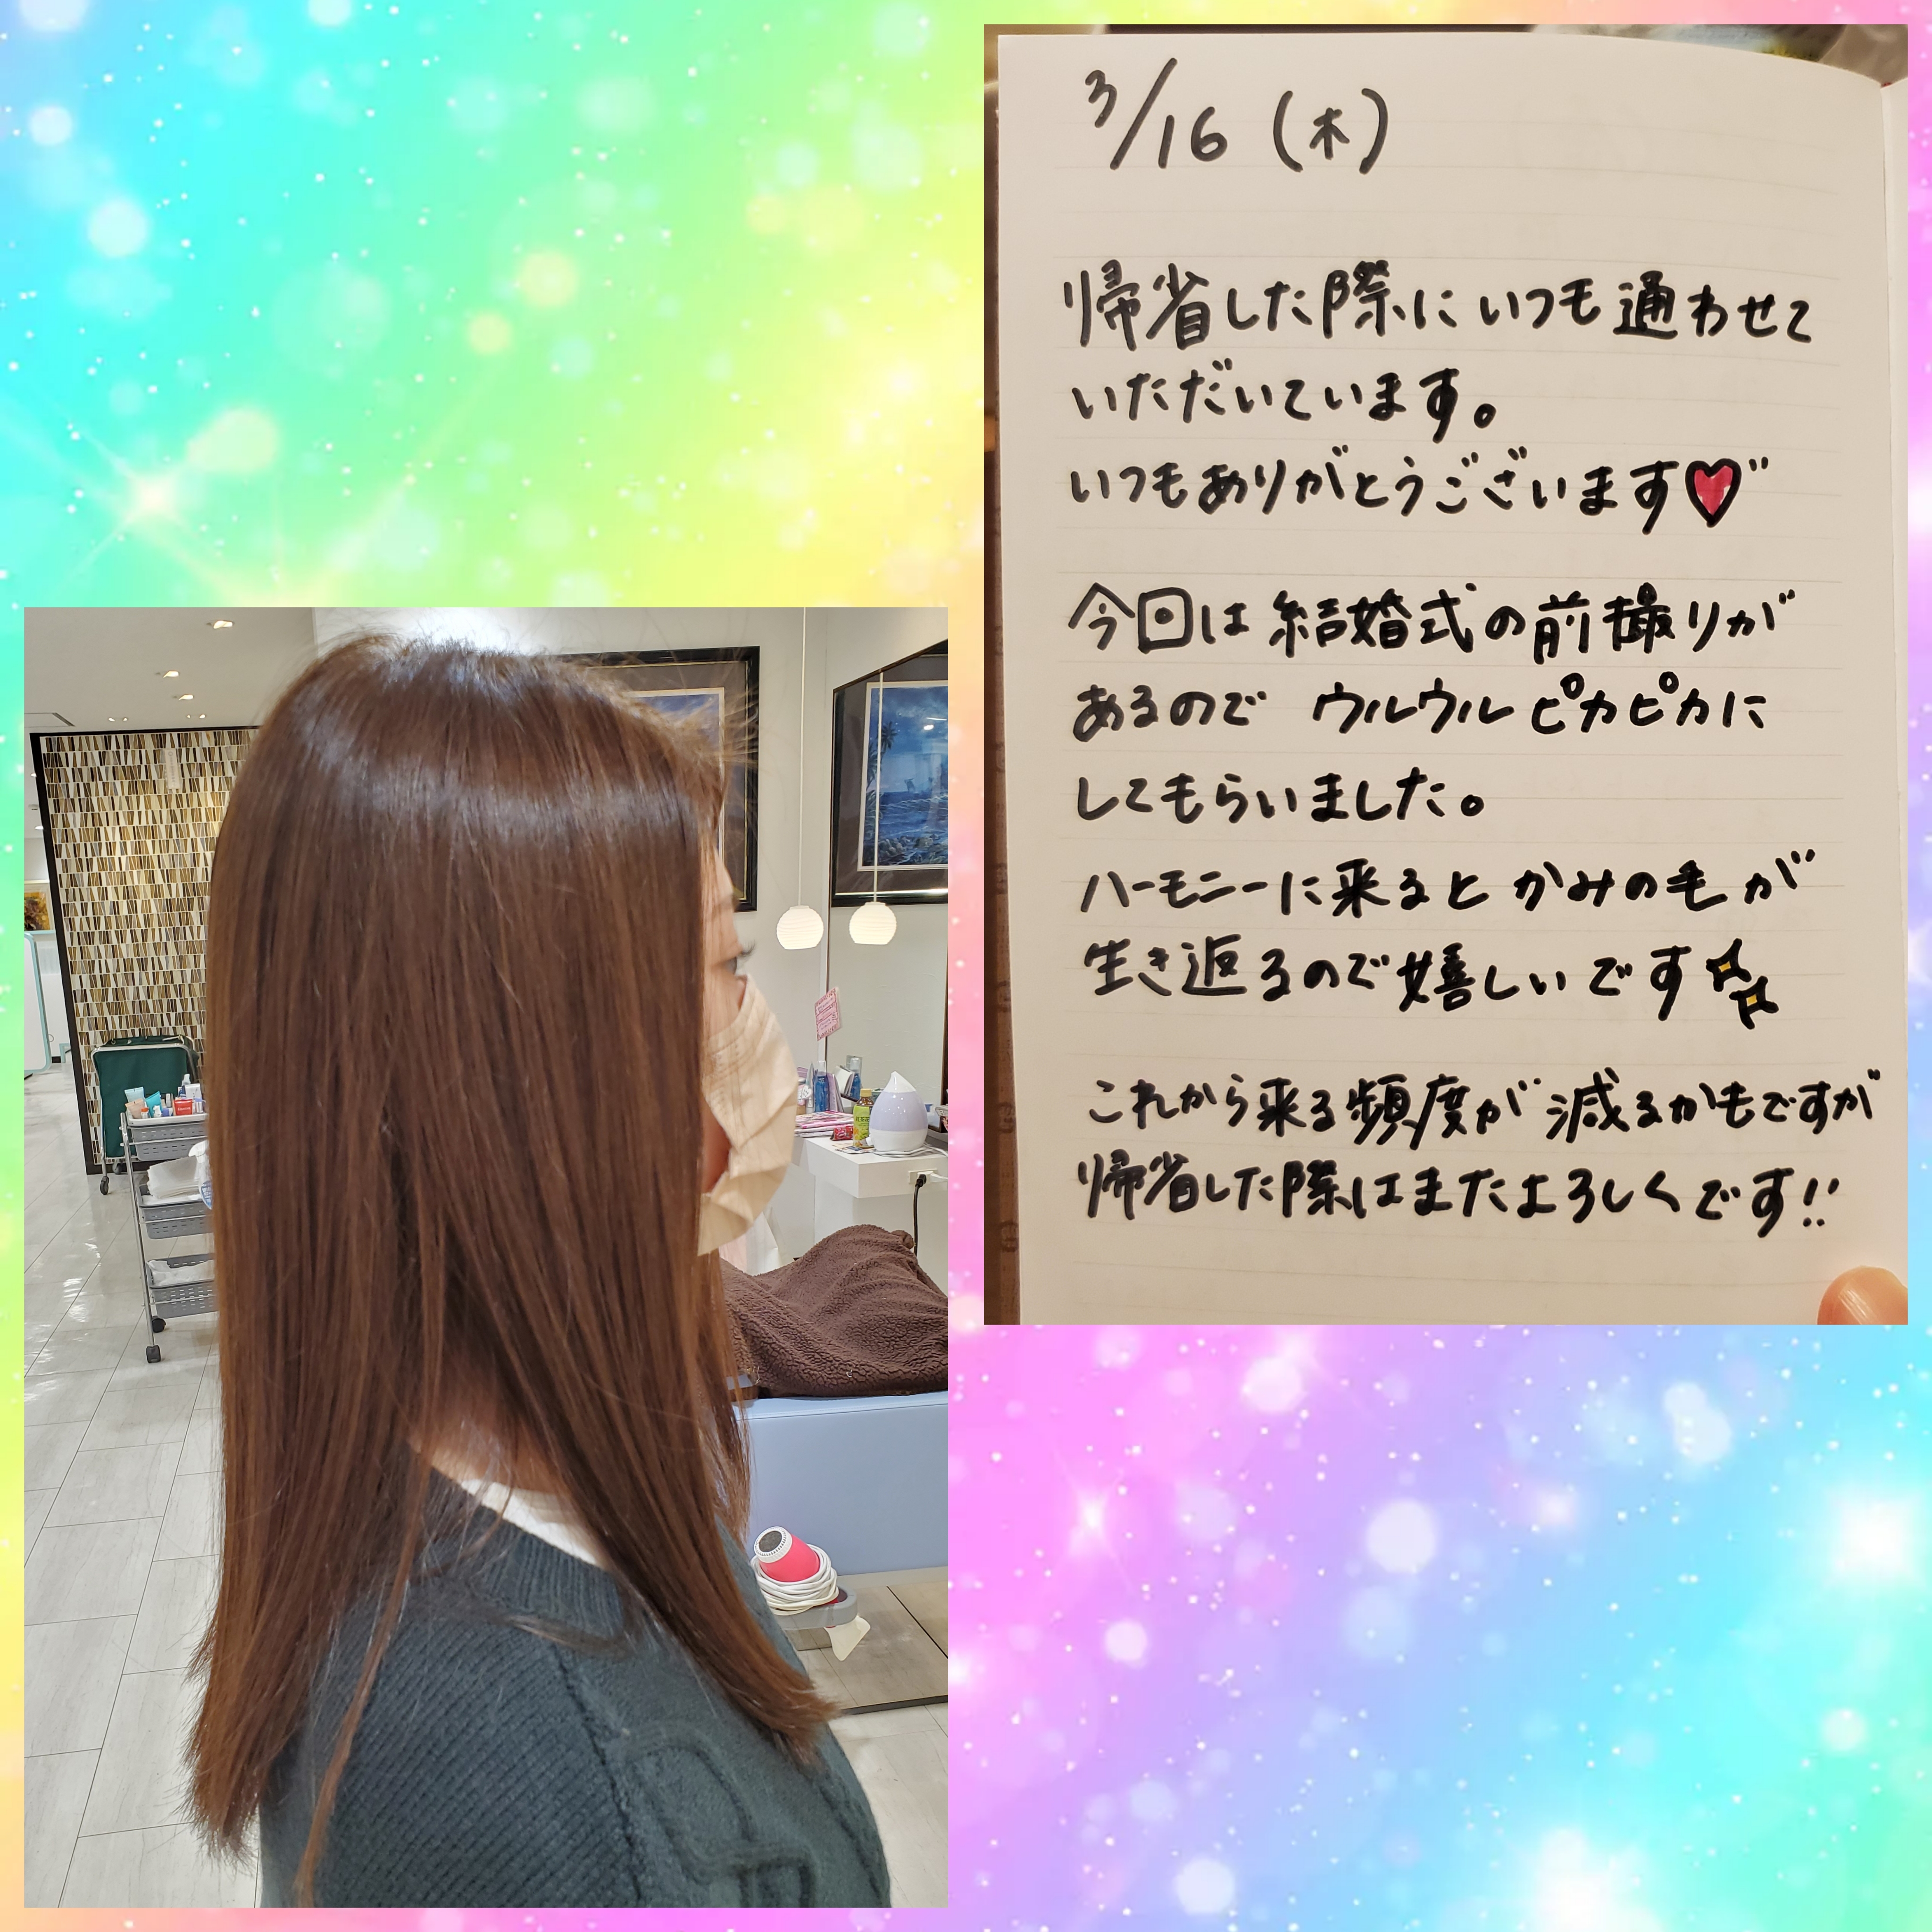 3/16 (木)
帰省した際にいつも通わせて
いただいています。
いつもありがとうございます♥
今回は結婚式の前撮りが
あるので ウルウルピカピカに
してもらいました。
ハーモニーに来るとかみの毛が
生き返るので嬉しいです
これから来る頻度が減るかもですが
帰省した際はまたよろしくです!!